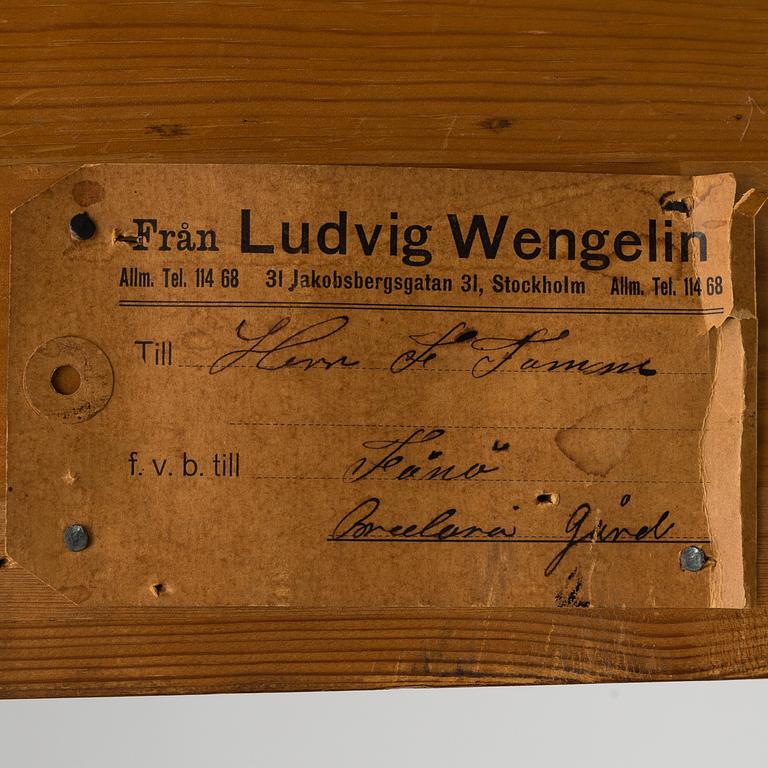 Från Ludvig Wengelin
Allm. Tel. 114 68 31 Jakobsbergsgatan 31, Stockholm Allm. Tel. 114 68
Till Herr F Tamm
f. v. b. till Fånö
Gård